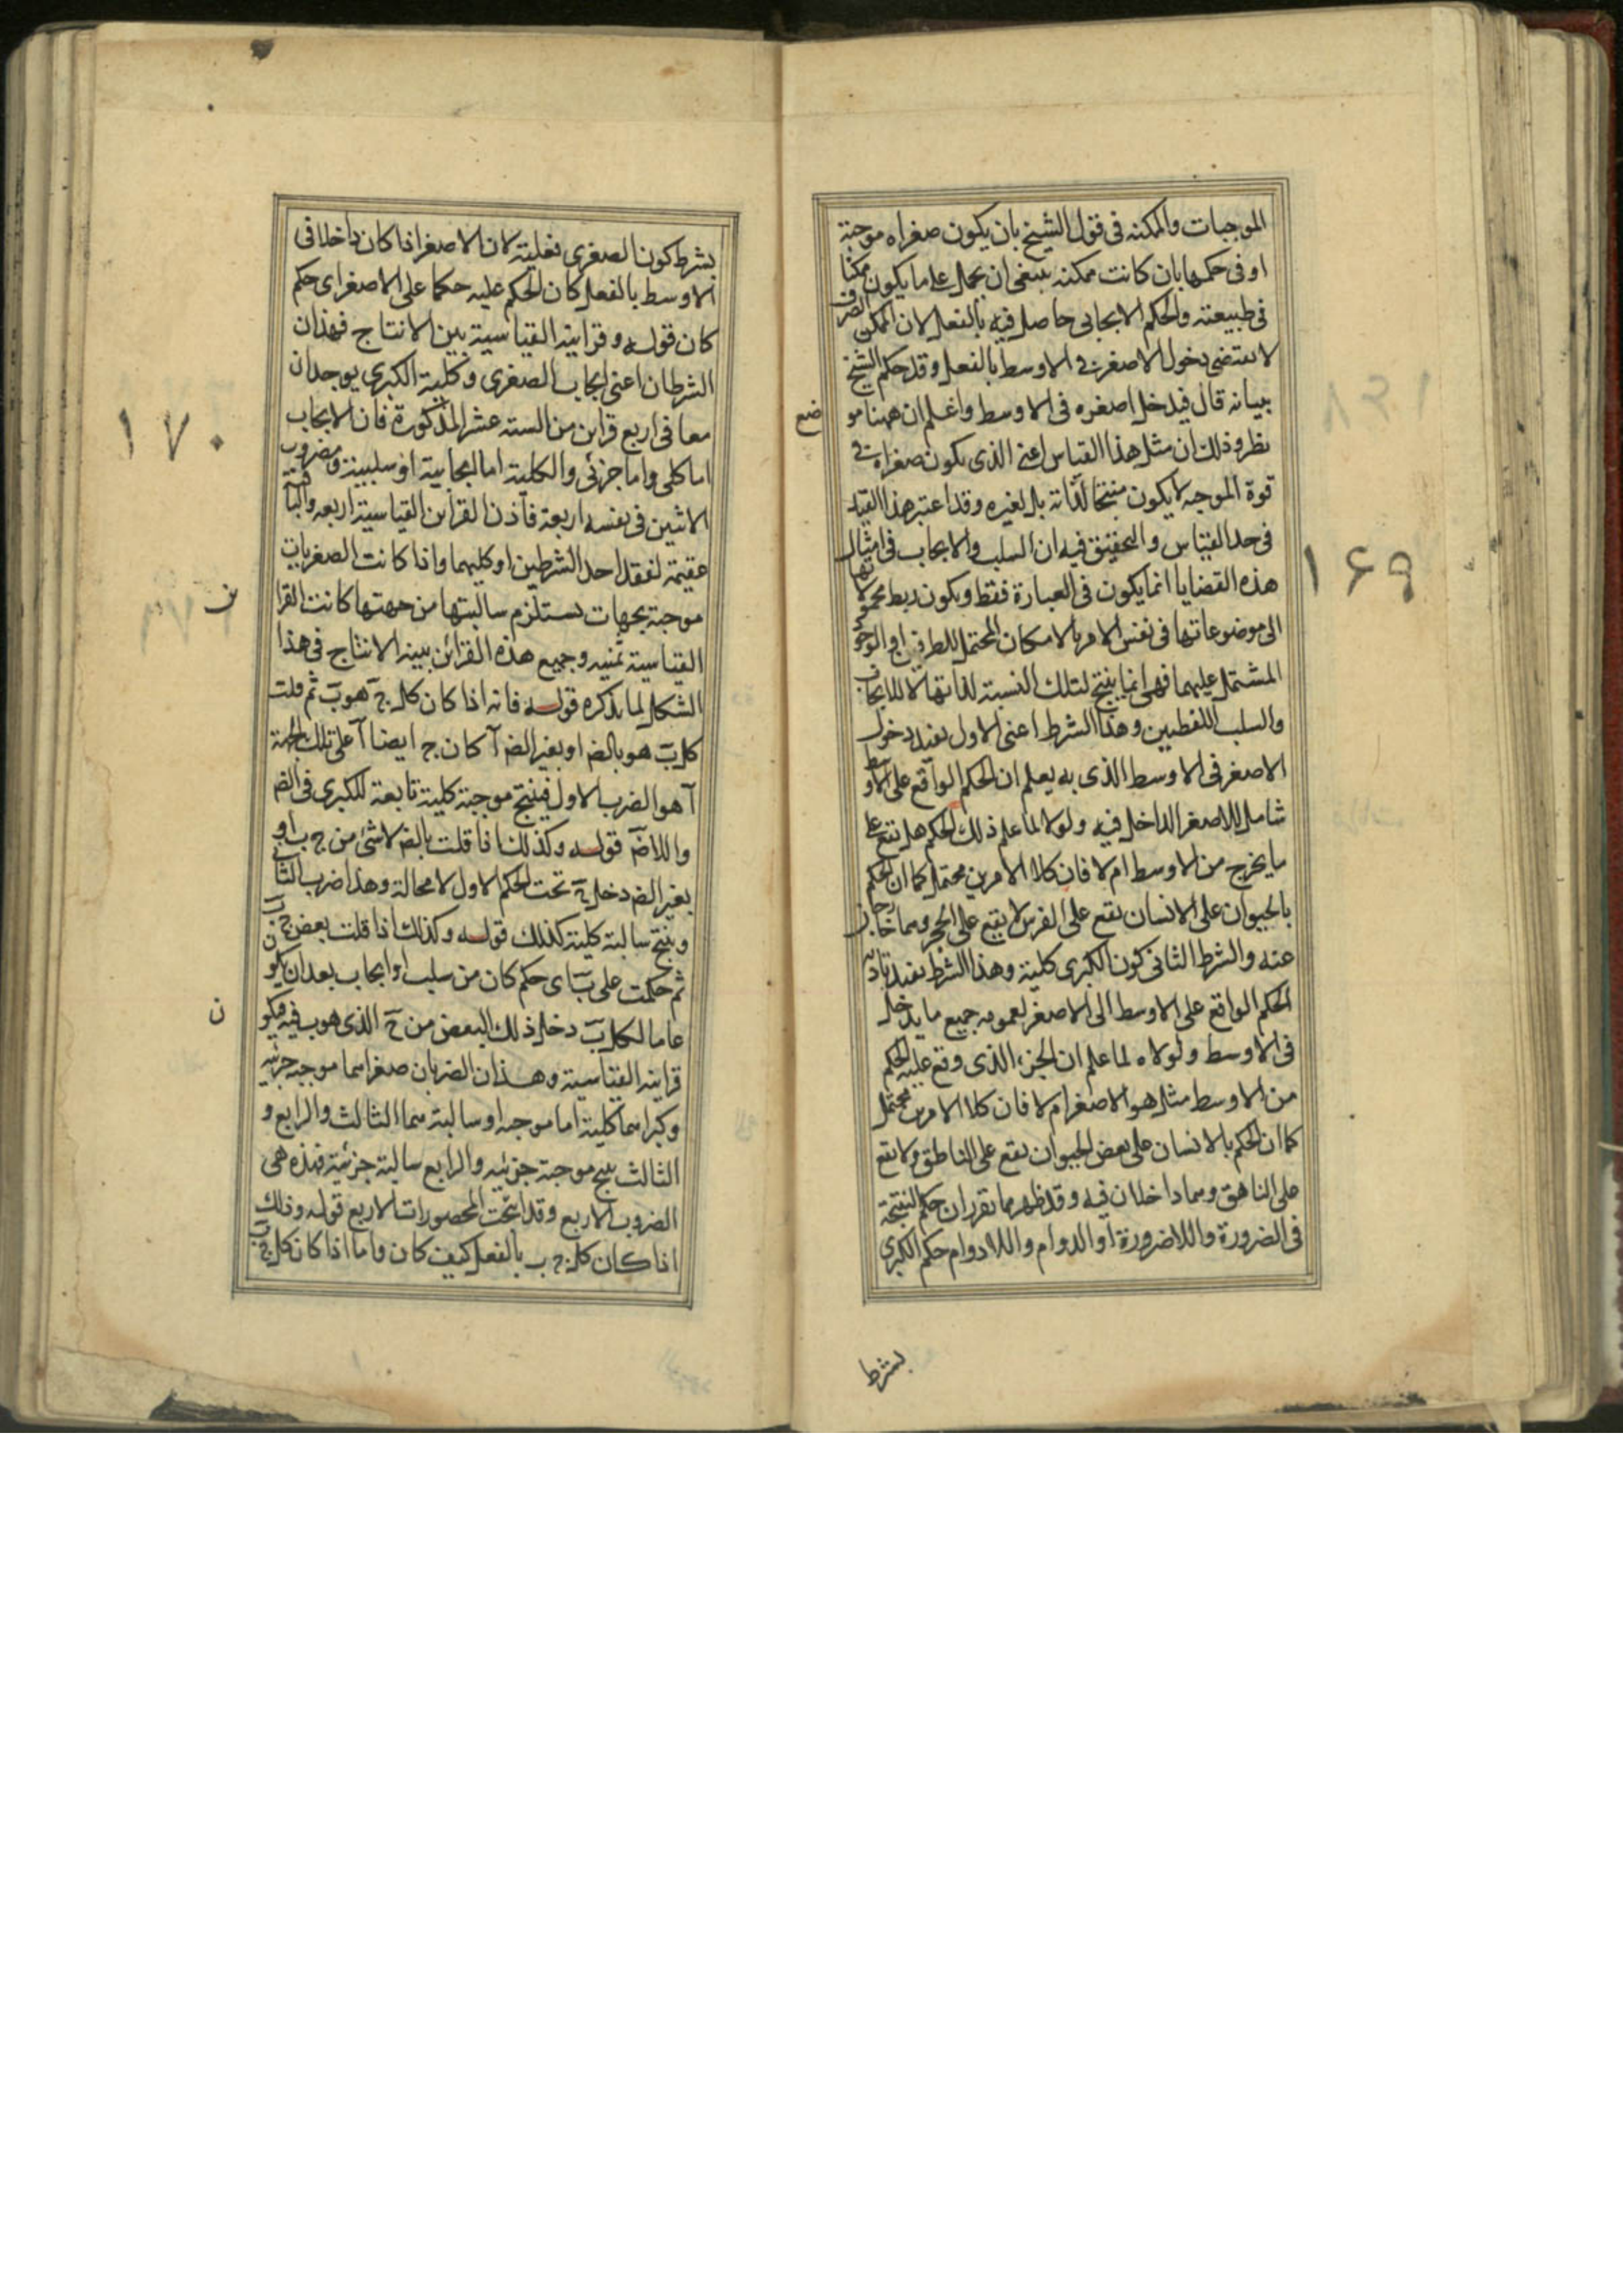 الموجبات والممكنه فى قول الشيخ بان يكون صغراه موجبة
او فى حكمها بان كانت ممكنه ينبغى ان يحمل على ما يكون ممكنا
فى طبيعته والحكم الايجابى حاصل فيه بالفعل لان الممكن الصرف
لا يقتضى دخول الاصغر فى الاوسط بالفعل وقد حكم الشيخ
ببيانه قال فيدخل اصغره فى الاوسط واعلم ان ههنا مو
ضع
نظر وذلك ان مثل هذا القياس اعنى الذى يكون صغراه فى
قوة الموجبه لا يكون منتجا لذاته بل لغيره وقد اعتبر هذا القيد
فى حد القياس والتحقيق فيه ان السلب والايجاب فى امثال
١۶٩
هذه القضايا انما يكون فى العبارة فقط ويكون ربط محمولاتها
الى موضوعاتها فى نفس الامر بالامكان المحتمل للطرفين او الوجود
المشتمل عليهما فهى انما ينتج لتلك النسبة لذاتها لا للايجاب
والسلب اللفظيين وهذا الشرط اعنى الاول يفيد دخول
الاصغر فى الاوسط الذى به يعلم ان الحكم الواقع على الاوسط
شامل للاصغر الداخل فيه ولولا لما علم ذلك الحكم هل يقع على
ما يخرج من الاوسط ام لا فان كلا الامرين محتمل كما ان الحكم
بالحيوان على الانسان يقع على الفرس لا يقع على الحجر وهما خارجان
عنه والشرط الثانى كون الكبرى كلية وهذا الشرط يفيد تاديه
الحكم الواقع على الاوسط الى الاصغر لعمومه جميع ما يدخل
فى الاوسط ولولاه لما علم ان الجزء الذى وقع عليه الحكم
من الاوسط مثل هو الاصغر ام لا فان كلا الامرين محتمل
كما ان الحكم بالانسان على بعض الحيوان يقع على الناطق ولا يقع
على الناهق وهما داخلان فيه وقد ظهر مما تقرر ان حكم النتيجة
فى الضرورة واللاضرورة او الدوام واللادوام حكم الكبرى
بشرط
بشرط كون الصغرى فعلية لان الاصغر اذا كان داخلا فى
الاوسط بالفعل كان الحكم عليه حكما على الاصغر اى حكم
كان قوله وقراينه القياسية بين الانتاج فهذان
الشرطان اعنى ايجاب الصغرى وكلية الكبرى يوجدان
معا فى اربع قراين من الستة عشر المذكورة فان الايجاب
١٧٠
اما كلى واما جزئى والكلية اما ايجابية او سلبية ومضروب
الاثنين فى نفسه اربعة فاذن القراين القياسية اربعه والباقية
عقيمة لفقد احد الشرطين او كليهما واذا كانت الصغريات
موجبة بجهات يستلزم سالبتها من جهتها كانت القرا
ين
القياسية ثمنيه وجميع هذه القرائن بينه الانتاج فى هذا
الشكل لما يذكره قوله فانه اذا كان كل ج هو ب ثم قلت
كل ب هو بالض او بغير الض آ كان ج ايضا آ على تلك الجهة
آ هو الضرب الاول فينتج موجبة كلية تابعة للكبرى فى الض
واللاض قوله وكذلك اذا قلت بالض لا شئ من ج ب او
بغير الض دخل ج تحت الحكم الاول لا محالة وهذا ضرب الثانى
وينتج سالبة كلية كذلك قوله وكذلك اذا قلت بعض ج ب
ثم حكمت على ب اى حكم كان من سلب او ايجاب بعد ان يكون
عاما لكل ب دخل ذلك البعض من ج الذى هو ب فيه فيكو
ن
قراينه القياسية وهذان الضربان صغراهما موجبه جزئيه
وكبراهما كلية اما موجبه او سالبة هما الثالث والرابع و
الثالث ينتج موجبة جزئيه والرابع سالبة جزئية فهذه هى
الضروب الاربع وقد انتجت المحصورات الاربع قوله وذلك
اذا كان كل ج ب بالفعل كيف كان واما اذا كان كل ج ب